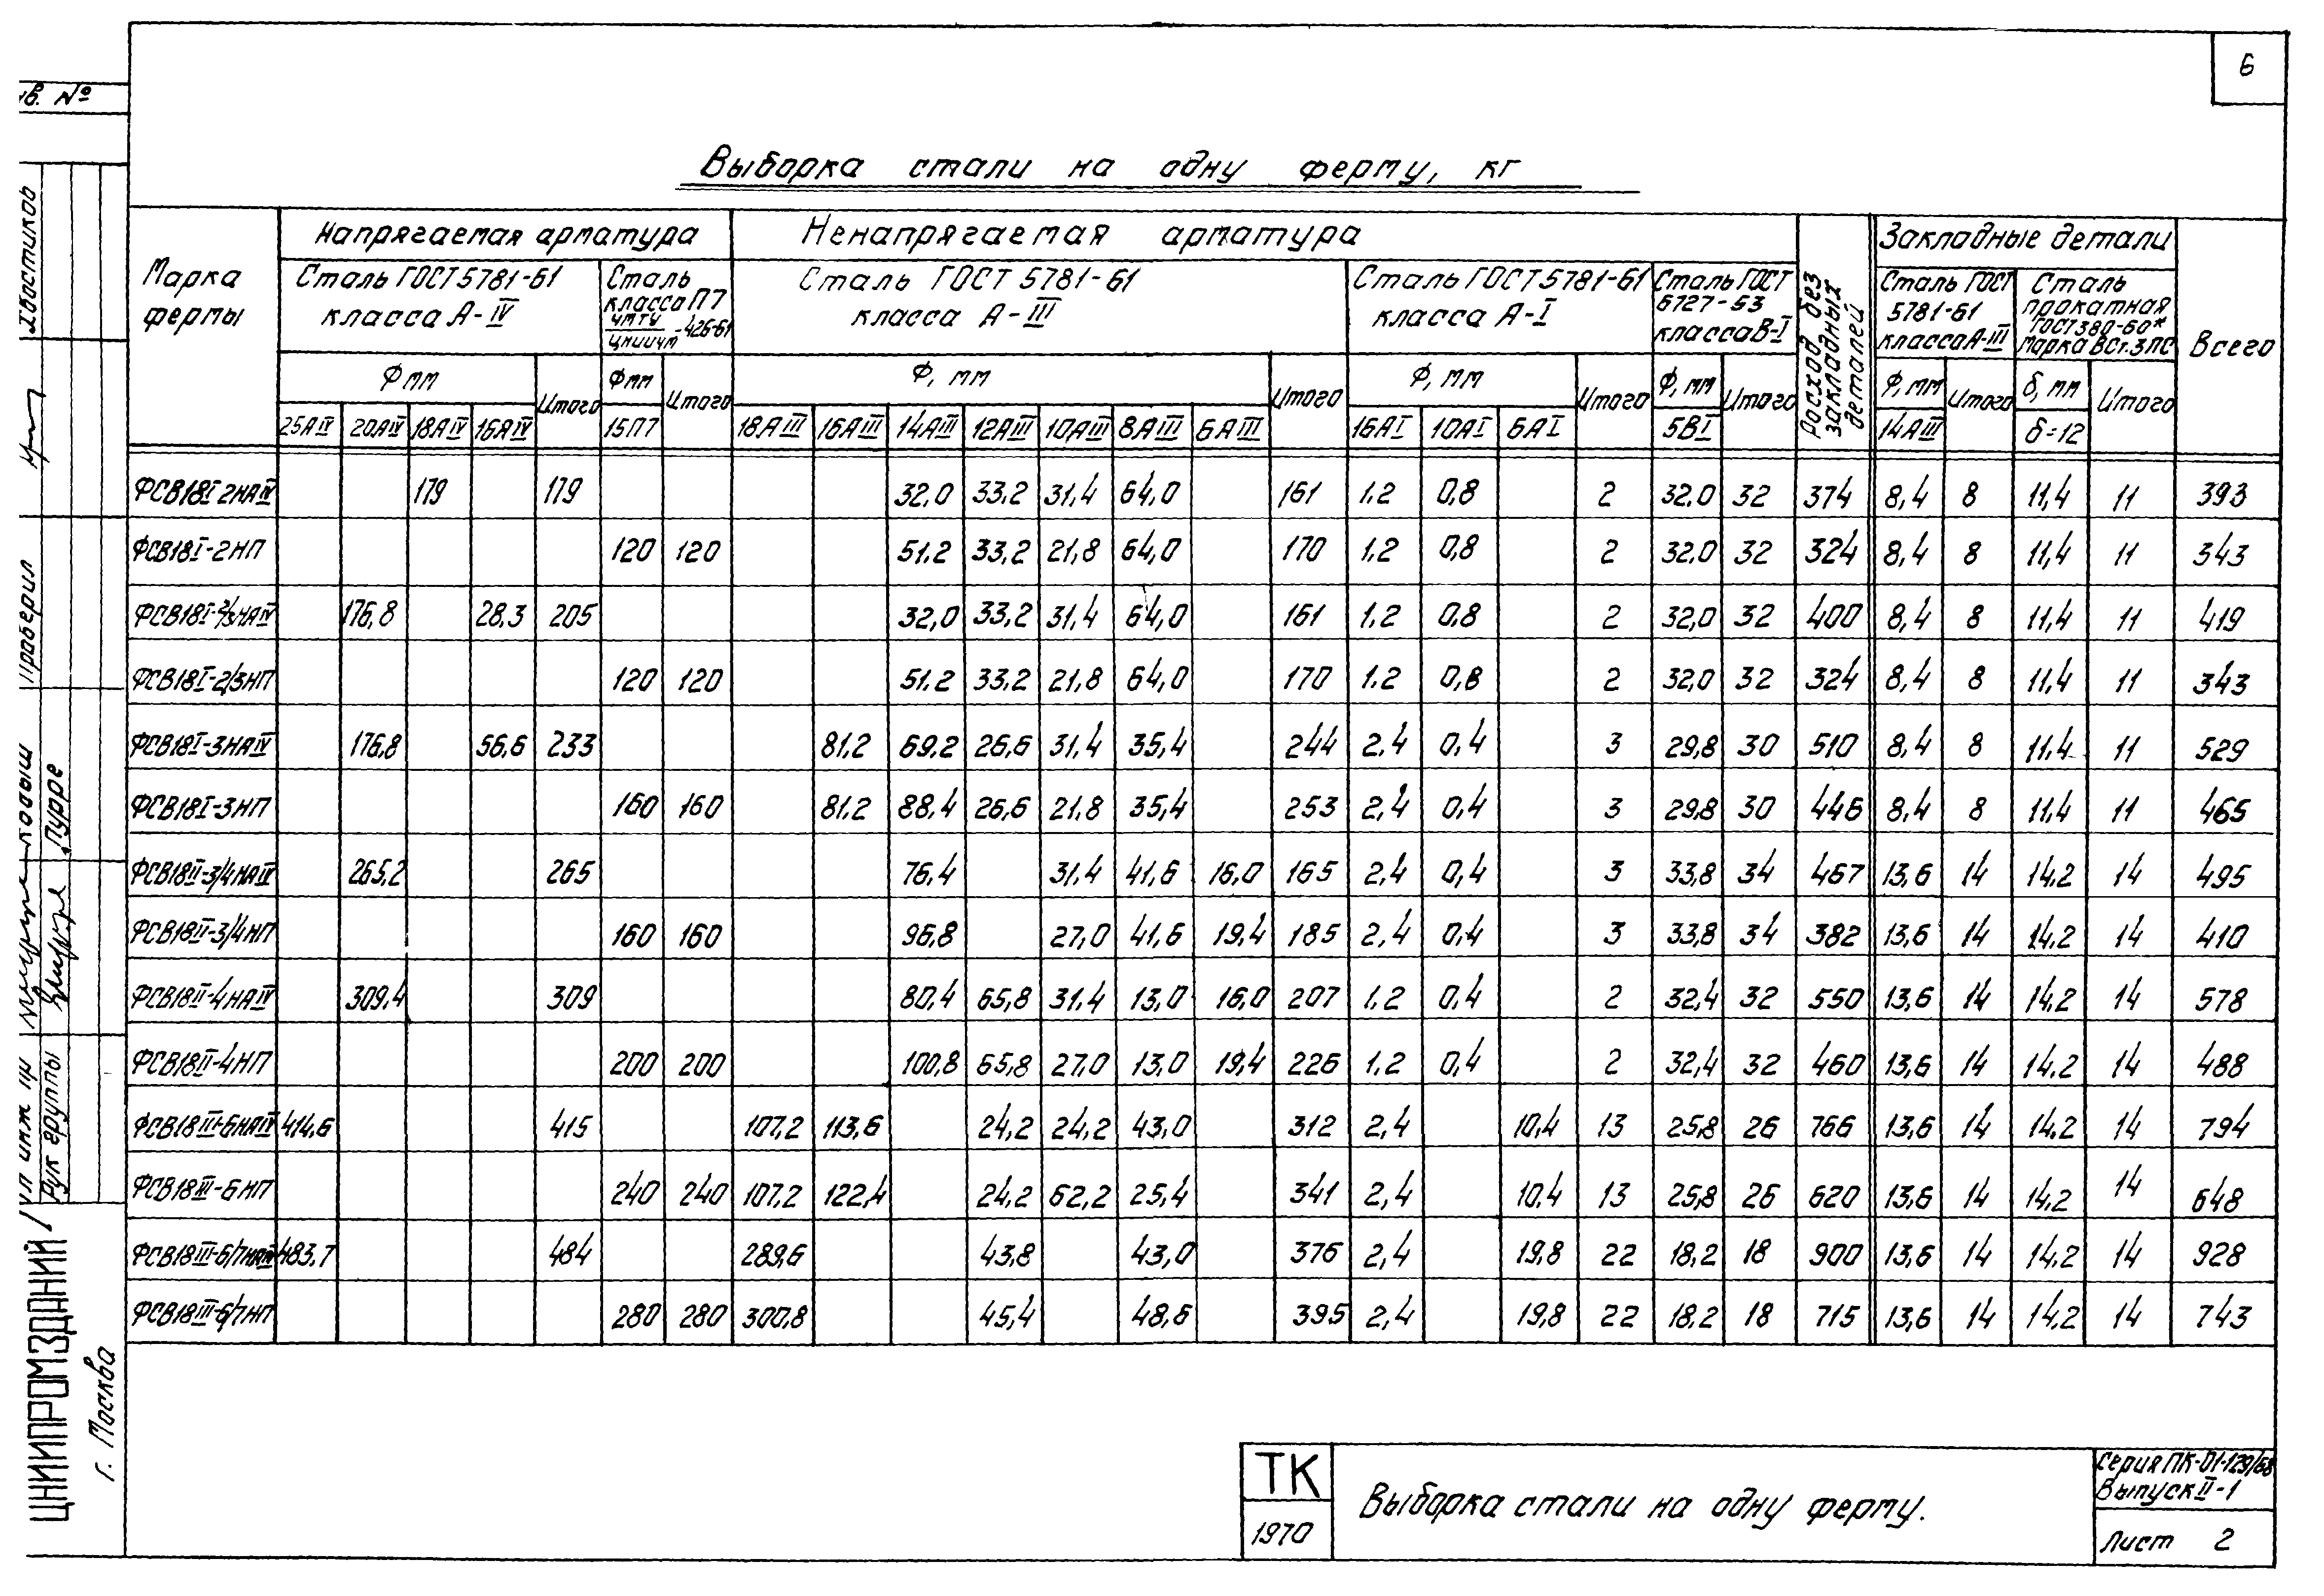 6
Выборка стали на одну ферму, кг
Марка фермы
Напрягаемая арматура
Ненапрягаемая арматура
Расход без закладных деталей
Закладные детали
Всего
Сталь ГОСТ 5781-61 класса А-IV
Сталь класса П7 ЧМТУ/ЦНИИЧМ -426-61
Сталь ГОСТ 5781-61 класса А-III
Сталь ГОСТ 5781-61 класса А-I
Сталь ГОСТ 6727-53 класса В-I
Сталь ГОСТ 5781-61 класса А-III
Сталь прокатная ГОСТ 380-60* марка ВСт.3ПС
Ф мм Итого Ф мм Итого Ф, мм Итого Ф, мм Итого Ф, мм Итого Ф, мм Итого δ, мм Итого
25АIV 20АIV 18АIV 16АIV 15П7 18АIII 16АIII 14АIII 12АIII 10АIII 8АIII 6АIII 16АI 10АI 6АI 5ВI 14АIII δ=12
ФСВ18I-2НАIV 179 179 32,0 33,2 31,4 64,0 161 1,2 0,8 2 32,0 32 374 8,4 8 11,4 11 393
ФСВ18I-2НП 120 120 51,2 33,2 21,8 64,0 170 1,2 0,8 2 32,0 32 324 8,4 8 11,4 11 343
ФСВ18I-2/3НАIV 176,8 28,3 205 32,0 33,2 31,4 64,0 161 1,2 0,8 2 32,0 32 400 8,4 8 11,4 11 419
ФСВ18I-2/3НП 120 120 51,2 33,2 21,8 64,0 170 1,2 0,8 2 32,0 32 324 8,4 8 11,4 11 343
ФСВ18I-3НАIV 176,8 56,6 233 81,2 69,2 26,6 31,4 35,4 244 2,4 0,4 3 29,8 30 510 8,4 8 11,4 11 529
ФСВ18I-3НП 160 160 81,2 88,4 26,6 21,8 35,4 253 2,4 0,4 3 29,8 30 446 8,4 8 11,4 11 465
ФСВ18II-3/4НАIV 265,2 265 76,4 31,4 41,6 16,0 165 2,4 0,4 3 33,8 34 467 13,6 14 14,2 14 495
ФСВ18II-3/4НП 160 160 96,8 27,0 41,6 19,4 185 2,4 0,4 3 33,8 34 382 13,6 14 14,2 14 410
ФСВ18II-4НАIV 309,4 309 80,4 65,8 31,4 13,0 16,0 207 1,2 0,4 2 32,4 32 550 13,6 14 14,2 14 578
ФСВ18II-4НП 200 200 100,8 65,8 27,0 13,0 19,4 226 1,2 0,4 2 32,4 32 460 13,6 14 14,2 14 488
ФСВ18III-6НАIV 414,6 415 107,2 113,6 24,2 24,2 43,0 312 2,4 10,4 13 25,8 26 766 13,6 14 14,2 14 794
ФСВ18III-6НП 240 240 107,2 122,4 24,2 62,2 25,4 341 2,4 10,4 13 25,8 26 620 13,6 14 14,2 14 648
ФСВ18III-6/7НАIV 483,7 484 289,6 43,8 43,0 376 2,4 19,8 22 18,2 18 900 13,6 14 14,2 14 928
ФСВ18III-6/7НП 280 280 300,8 45,4 48,6 395 2,4 19,8 22 18,2 18 715 13,6 14 14,2 14 743
ТК
1970
Выборка стали на одну ферму.
Серия ПК-01-129/68
Выпуск II-1
Лист 2
ЦНИИПРОМЗДАНИЙ
г. Москва
Рук группы
Проверил
Хвостиков
нв. №